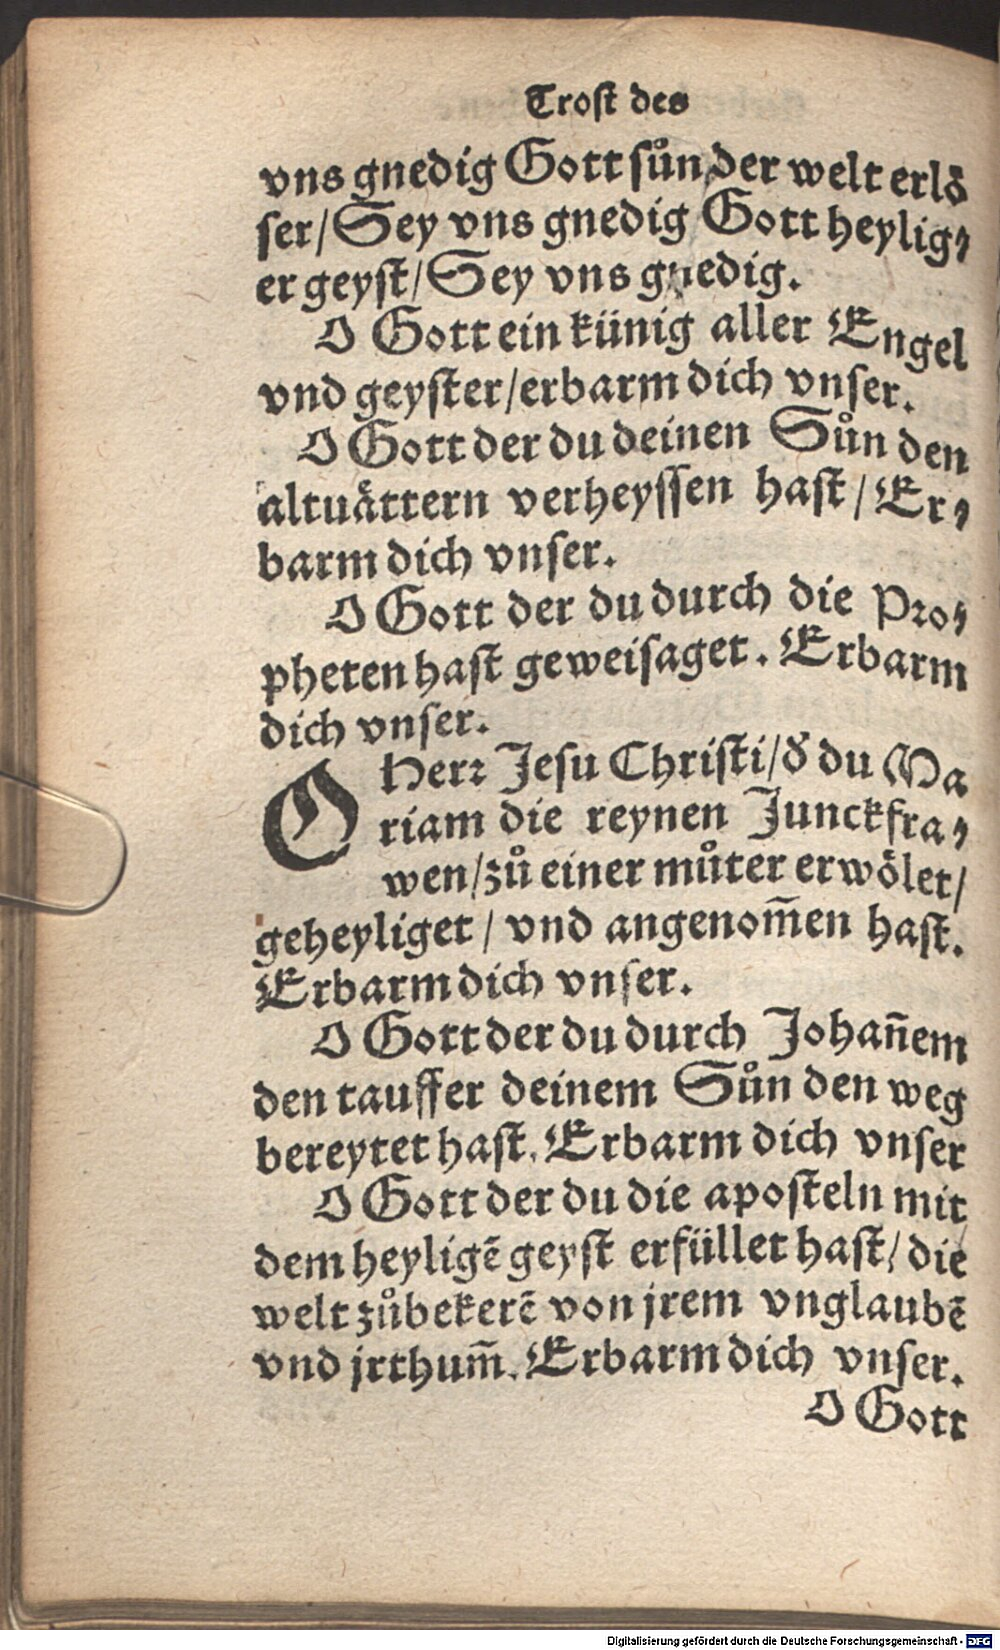 Trost des
vns gnedig Gott sůn der welt erlö
ser/ Sey vns gnedig Gott heylig⸗
er geyst/ Sey vns gnedig.
O Gott ein künig aller Engel
vnd geyster/ erbarm dich vnser.
O Gott der du deinen Sůn den
altuåttern verheyssen hast/ Er⸗
barm dich vnser.
O Gott der du durch die Pro⸗
pheten hast geweisaget. Erbarm
dich vnser.
O Herr Jesu Christi/ d̕ du Ma
riam die reynen Junckfra⸗
wen/ zů einer můter erwölet/
geheyliget/ vnd angenom̃en hast.
Erbarm dich vnser.
O Gott der du durch Johañem
den tauffer deinem Sůn den weg
bereytet hast. Erbarm dich vnser
O Gott der du die aposteln mit
dem heyligẽ geyst erfüllet hast/ die
welt zůbekerẽ von jrem vnglaubẽ
vnd jrthum̃. Erbarm dich vnser.
O Gott
Digitalisierung gefördert durch die Deutsche Forschungsgemeinschaft - DFG